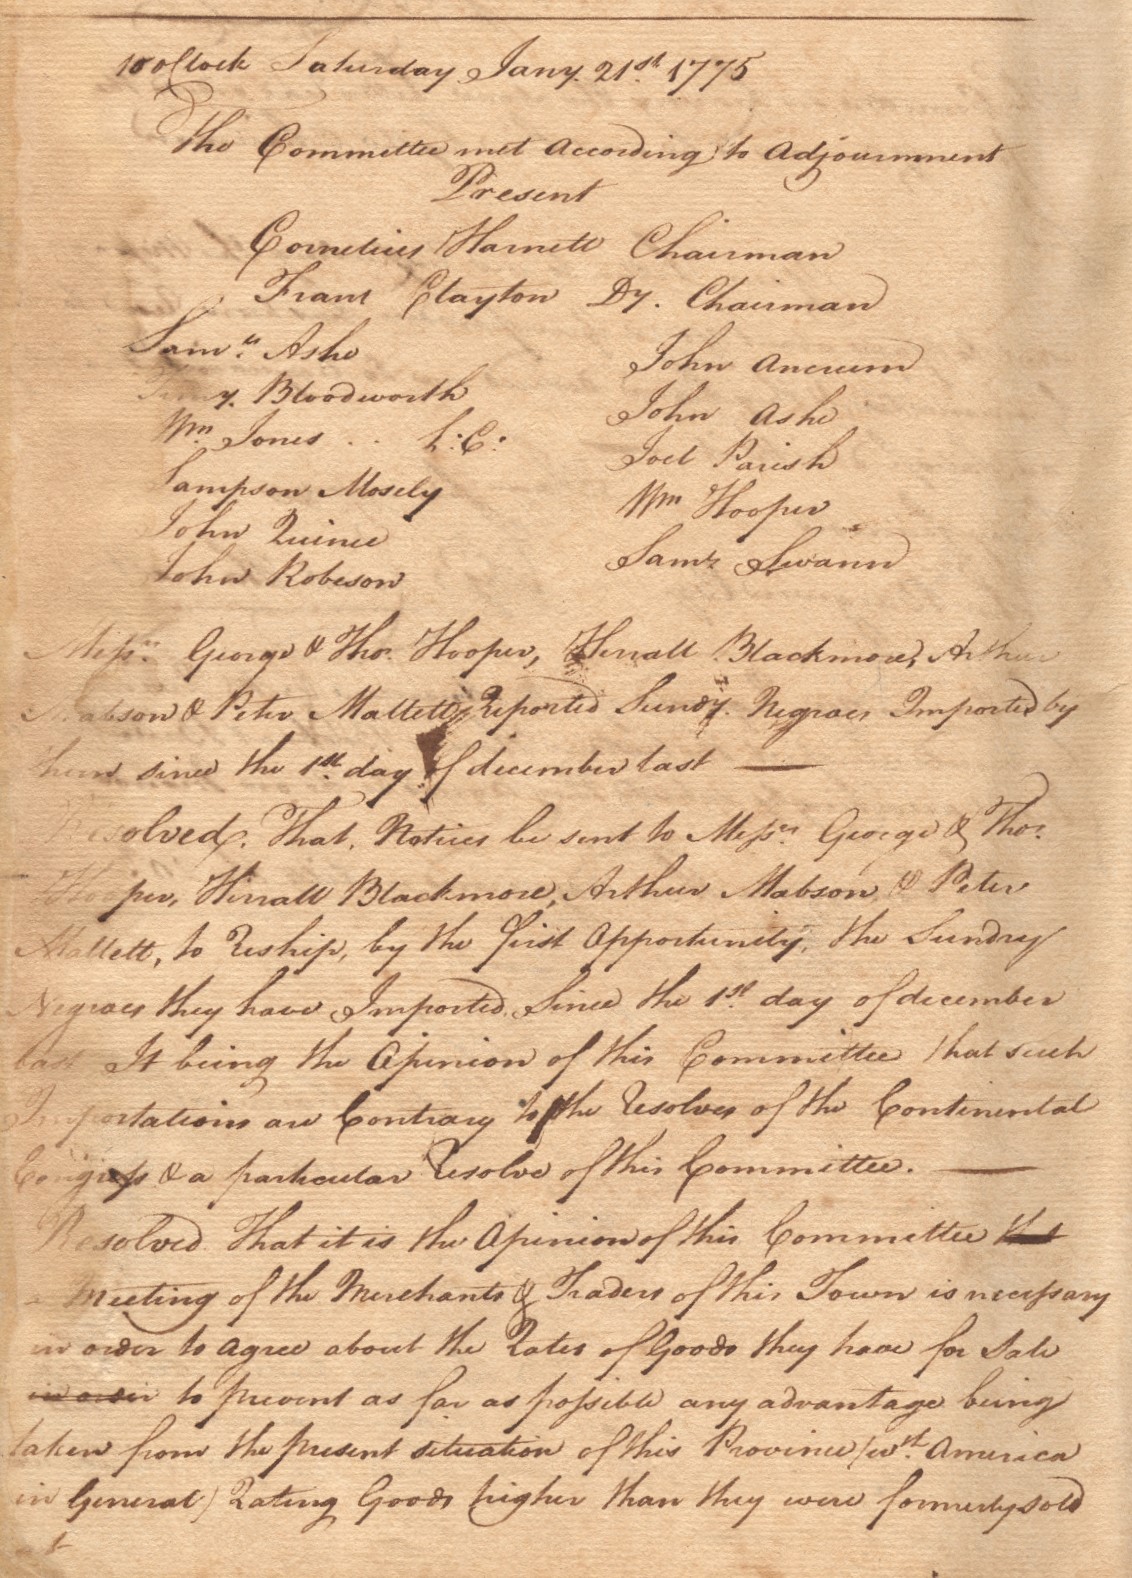 10 oClock Saturday Jany. 21st. 1775
The Committee met according to adjournment
Present
Cornelius Harnett Chairman
Frans Clayton Dy. Chairman
Saml. Ashe
John Ancrum
Timy. Bloodworth
John Ashe
Wm. Jones .. L:C:
Joel Parish
Sampson Mosely
Wm Hooper
John Quince
Saml Swann
John Robeson
Messrs. George & Thos. Hooper, Kenall Blackmore, Arthur
Mabson & Peter Mallett, Reported Sundy. Negroes Imported by
them since the 1st. day of december last —
Resolved. That, Notices be sent to Messrs. George & Thos.
Hooper, Kinall Blackmore, Arthur Mabson & Peter
Mallett, to Reship, by the first opportunity, the Sundry
Negroes they have Imported, Since the 1st. day of december
last It being the Opinion of this Committee that such
Importations are Contrary to the Resolves of the Continental
Congress & a particular Resolve of this Committee. —
Resolved That it is the Opinion of this Committee that
a Meeting of the Merchants & Traders of this Town is necessary
in order to agree about the Rates of Goods they have for Sale
in order to prevent as far as possible any advantage being
taken from the present situation of this Province (wt. America
in General) Rating Goods higher than they were formerly sold
at